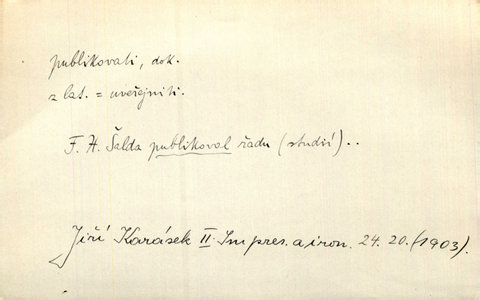 publikovati, dok.
z lat. = uveřejniti.
F. X. Šalda publikoval řadu (studií)..
Jiří Karásek II. Impres. a iron. 24. 20. (1903).